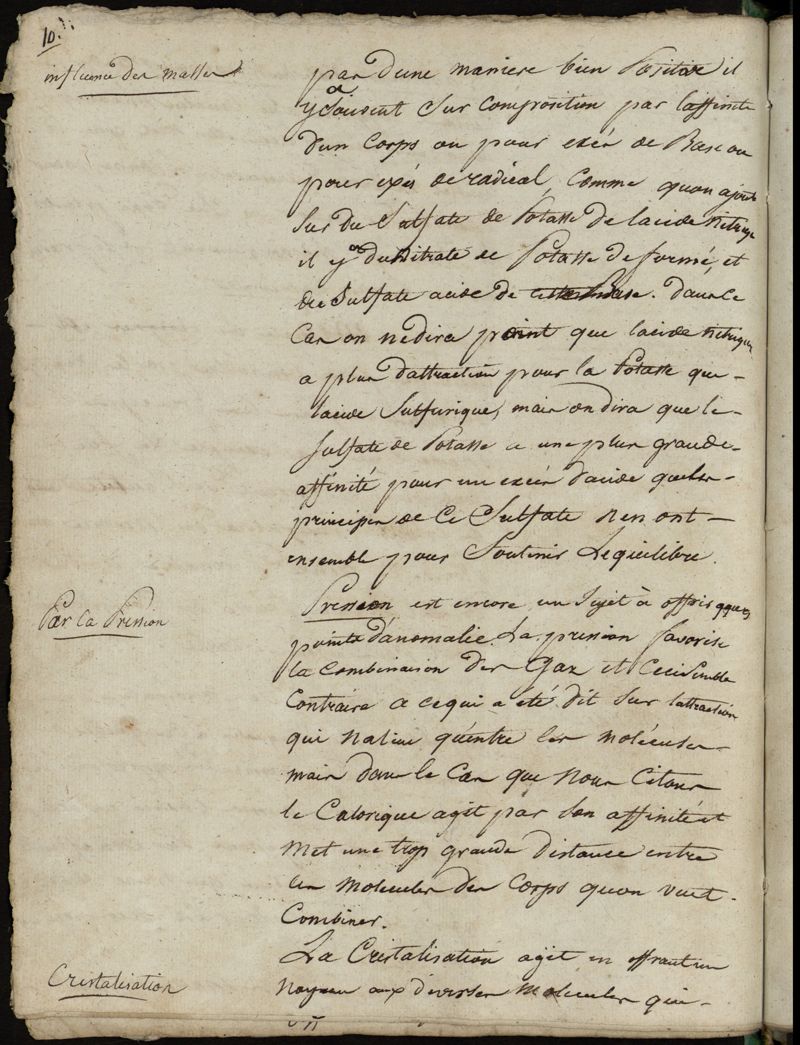 10.
influence des masses
par d'une maniere bien Positive il
y a souvent Sur composition par l'affinité
d'un Corps ou pour exés de Base ou
pour exés de radical, Comme qu'on ajoute
Sur du Sulfate de Potasse de lacide nitrique
il y a du Nitrate de Potasse de formé, et
du Sulfate acide de cette Base. dans ce
Cas on ne dira point que lacide nitrique
a plus d'attraction pour la Potasse que
lacide Sulfurique, mais on dira que le
Sulfate de Potasse a une plus grande
affinité pour un exés d'acide que les
principes de Ce Sulfate n'en ont
ensemble pour Soutenir Lequilibre.
Par la Pression
Pression est encore un Sujet à offrir qques
points d'anomalie. La pression favorise
la Combinaison des Gaz et Ceci Semble
Contraire a ce qui a été dit Sur lattraction
qui na lieu qu'entre les molécules
mais dans le Cas que Nous Citons
le Calorique agit par Son affinité et
Met une trop grande distance entre
les molecules des Corps qu'on veut
Combiner.
Cristalisation
La Cristalisation agit en offrant un
Noyeau aux diverses molecules qui